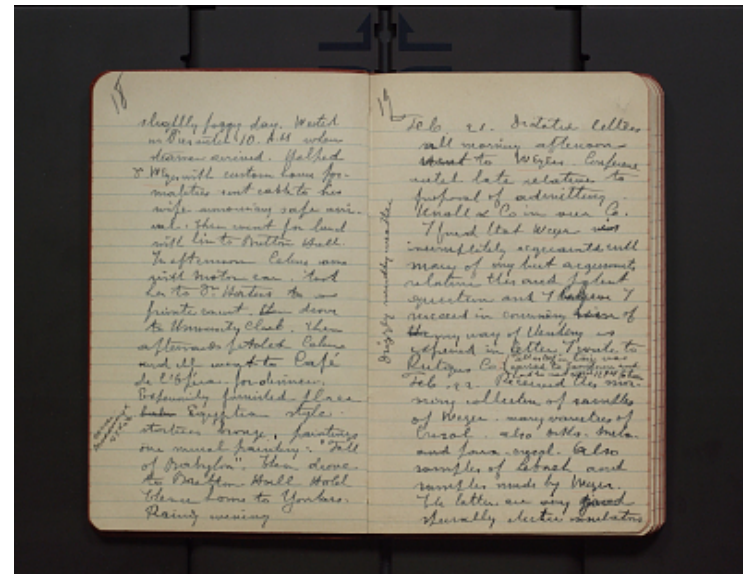 18
slightly foggy day. Waited
in Dr's until 10. A.M. when
steamer arrived. Helped
Dr Weyer with custom house for-
malities sent cable to his
wife announcing safe arri-
val. Then went for lunch
with him to Bretton Hall.
In afternoon Celine came
with Motor car. took
her to Dr
private
to University Club. Then
afterwards fetched Celine
and all went to Café
de l'Opera for dinner.
furnished place
Egyptian style.
bronze, paintings
one mural painting: "Fall
of Babylon". Then drove
to Bretton Hall Hotel
thence home to Yonkers.
Rainy evening
19
Feb. 21. Dictated letters
all morning afternoon
went to Weyers. Conference
until late relative to
proposal of admitting
Knoll & Co in our Co.
I find that Weyer was
incompletely acquainted with
many of my best arguments
relative this and patent
question and I believe I
succeed in convincing him of
my way of viewing as
expressed in letter I wrote to
Co.
Drizzly muddy weather
Feb. 22. Received this mor-
ning collection of samples
of Weyer. many varieties of
Cresol. also ortho. meta.
and para. cresol. Also
samples of Lebach and
samples made by Weyer.
The latter are very good
specially electric insulators